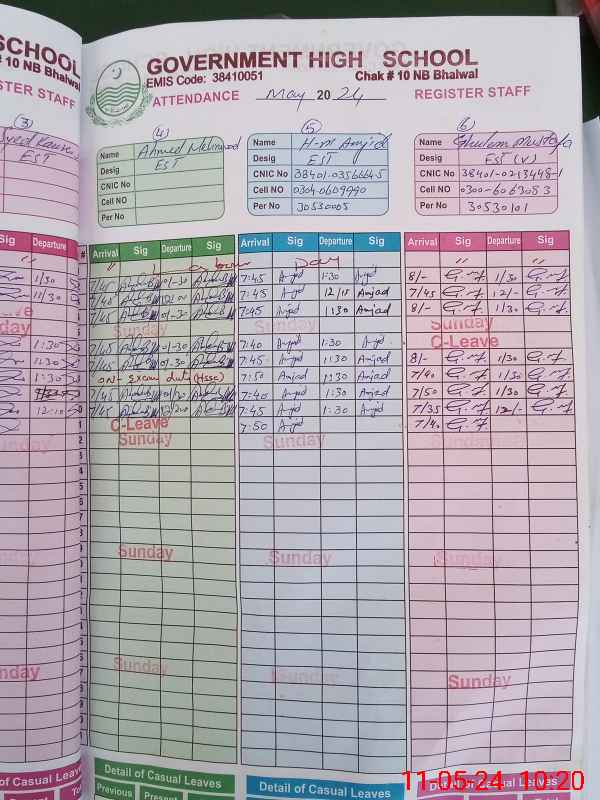 SCHOOL
GOVERNMENT HIGH SCHOOL
# 10 NB Bhalwal
EMIS Code: 38410051 Chak # 10 NB Bhalwal
REGISTER STAFF
ATTENDANCE May 2024 REGISTER STAFF
(3)
EST
(4)
Name Ahmed Mahmood
Desig EST
CNIC No
Cell NO
Per No
(5)
Name H-M Amjad
Desig EST
CNIC No 38401-0356664-5
Cell NO 0304-0609990
Per No 30530005
6
Name Ghulam Mustafa
Desig EST (V)
CNIC No 38401-0213448-1
Cell NO 0300-6063083
Per No 30530101
Sig Departure Sig
# Arrival Sig Departure Sig
Arrival Sig Departure Sig
Arrival Sig Departure Sig
Day
1/30 7/45 01-30 7:45 Amjad 1:30 Amjad 8/- G.M 1/30 G.M
11/30 7/40 12/00 7:45 Amjad 12/15 Amjad 7/45 G.M 12/- G.M
Leave 7/45 01-30 7:45 Amjad 1:30 Amjad 8/- G.M 1/30 G.M
Sunday Sunday Sunday Sunday
1:30 7/45 01-30 7:40 Amjad 1:30 Amjad C-Leave
1:30 7/45 01-30 7:45 Amjad 1:30 Amjad 8/- G.M 1/30 G.M
1:30 ON- Exam duty (HSSC) 7:50 Amjad 1:30 Amjad 7/40 G.M 1/30 G.M
7/45 01/30 7:40 Amjad 1:30 Amjad 7/50 G.M 1/30 G.M
12:10 7/45 12/00 7:45 Amjad 1:30 Amjad 7/35 G.M 12/- G.M
C-Leave 7:50 Amjad 7/40 G.M
Sunday Sunday Sunday Sunday
Sunday Sunday Sunday Sunday
Sunday Sunday Sunday Sunday
Detail of Casual Leaves
Detail of Casual Leaves
Detail of Casual Leaves
Previous Present
11-05-24 10:20